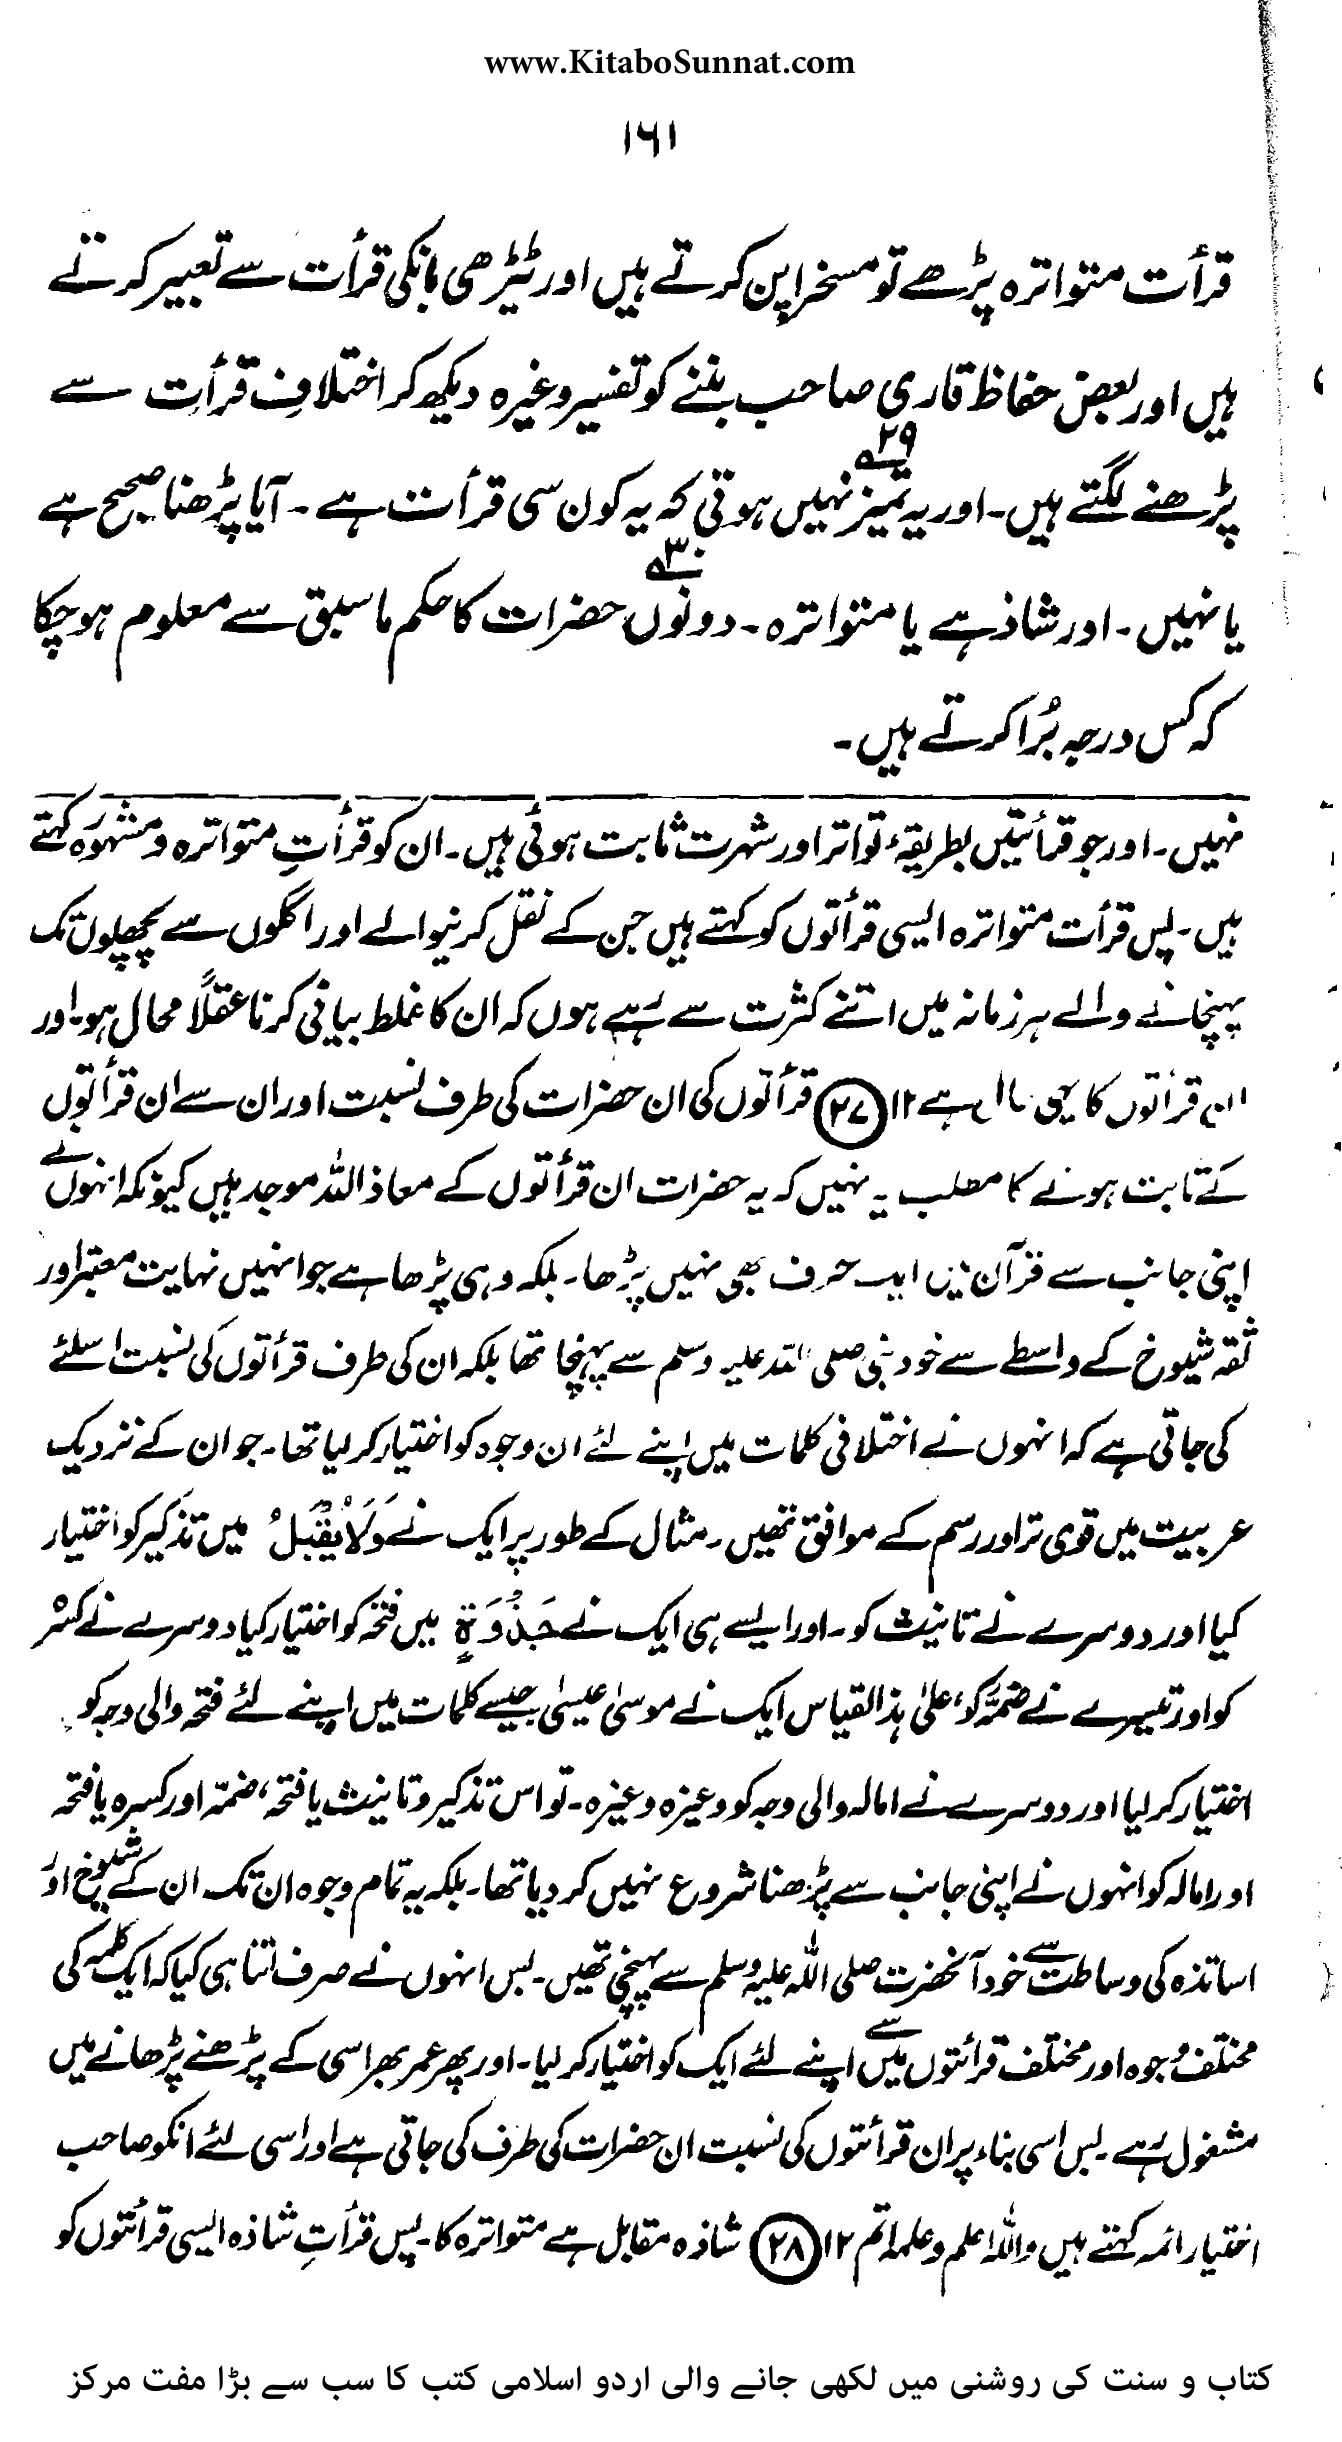 www.KitaboSunnat.com
۱۶۱
قرأت متواترہ پڑھے تو مسخراپن کرتے ہیں اور ٹیڑھی بانکی قرأت سے تعبیر کرتے
ہیں اور بعض حفاظ قاری صاحب بننے کو تفسیر وغیرہ دیکھ کر اختلافِ قرأت سے
پڑھنے لگتے ہیں۔ اور یہ تمیز ۲۹ نہیں ہوتی کہ یہ کون سی قرأت ہے ۔ آیا پڑھنا صحیح ہے
یا نہیں۔ اور شاذ ہے یا متواترہ ۔ دونوں ۳۰ حضرات کا حکم ماسبق سے معلوم ہوچکا
کہ کس درجہ بُرا کرتے ہیں۔
نہیں۔ اور جو قرائتیں بطریقۂ تواتر اور شہرت ثابت ہوئی ہیں۔ ان کو قرأتِ متواترہ و مشہورہ کہتے
ہیں۔ پس قرأت متواترہ ایسی قرأتوں کو کہتے ہیں جن کے نقل کرنیوالے اور اگلوں سے پچھلوں تک
پہنچانے والے ہر زمانہ میں اتنے کثرت سے رہے ہوں کہ ان کا غلط بیانی کرنا عقلاً محال ہو۔ اور
ان قرأتوں کا یہی حال ہے ۱۲ (۲۷) قرأتوں کی ان حضرات کی طرف نسبت اور ان سے ان قرأتوں
کے ثابت ہونے کا مطلب یہ نہیں کہ یہ حضرات ان قرأتوں کے معاذ اللہ موجد ہیں کیونکہ انہوں نے
اپنی جانب سے قرآن میں ایک حرف بھی نہیں پڑھا۔ بلکہ وہی پڑھا ہے جو انہیں نہایت معتبر اور
ثقہ شیوخ کے واسطے سے خود نبی صلی اللہ علیہ وسلم سے پہنچا تھا بلکہ ان کی طرف قرأتوں کی نسبت اسلئے
کی جاتی ہے کہ انہوں نے اختلافی کلمات میں اپنے لئے ان وجوہ کو اختیار کر لیا تھا۔ جو ان کے نزدیک
عربیت میں قوی تر اور رسم کے موافق تھیں۔ مثال کے طور پر ایک نے وَلَا یُقْبَلُ میں تذکیر کو اختیار
کیا اور دوسرے نے تانیث کو۔ اور ایسے ہی ایک نے جَذْوَةٍ میں فتحہ کو اختیار کیا دوسرے نے کسرہ
کو اور تیسرے نے ضمہ کو، علیٰ ہذا القیاس ایک نے موسیٰ عیسیٰ جیسے کلمات میں اپنے لئے فتحہ والی وجہ کو
اختیار کر لیا اور دوسرے نے امالہ والی وجہ کو وغیرہ وغیرہ۔ تو اس تذکیر و تانیث یا فتحہ، ضمّہ اور کسرہ یا فتحہ
اور امالہ کو انہوں نے اپنی جانب سے پڑھنا شروع نہیں کر دیا تھا۔ بلکہ یہ تمام وجوہ ان تک ان کے شیوخ اور
اساتذہ کی وساطت سے خود آنحضرت صلی اللہ علیہ وسلم سے پہنچی تھیں۔ بس انہوں نے صرف اتنا ہی کیا کہ ایک کلمہ کی
مختلف وجوہ اور مختلف قرائتوں میں سے اپنے لئے ایک کو اختیار کر لیا۔ اور پھر عمر بھر اسی کے پڑھنے پڑھانے میں
مشغول رہے ۔ بس اسی بناء پر ان قرائتوں کی نسبت ان حضرات کی طرف کی جاتی ہے اور اسی لئے انکو صاحب
اختیار ائمہ کہتے ہیں واللہ اعلم و علمہ اتم ۱۲ (۲۸) شاذہ مقابل ہے متواترہ کا۔ پس قرأتِ شاذہ ایسی قرائتوں کو
کتاب و سنت کی روشنی میں لکھی جانے والی اردو اسلامی کتب کا سب سے بڑا مفت مرکز